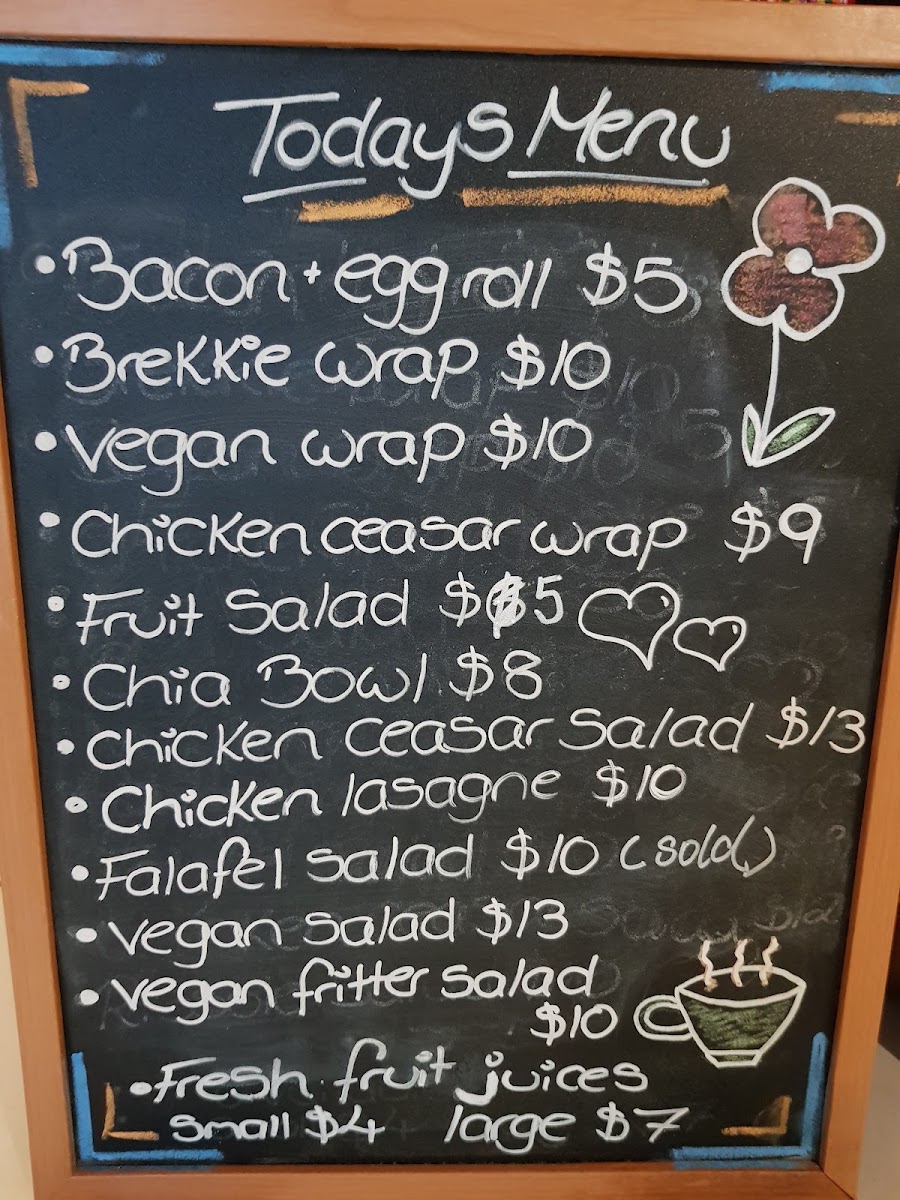 Todays Menu
• Bacon + egg roll $5
• Brekkie wrap $10
• vegan wrap $10
• Chicken ceasar wrap $9
• Fruit Salad $5
• Chia Bowl $8
• Chicken ceasar Salad $13
• Chicken lasagne $10
• Falafel salad $10 (sold)
• vegan salad $13
• vegan fritter salad
$10
• Fresh fruit juices
small $4 large $7